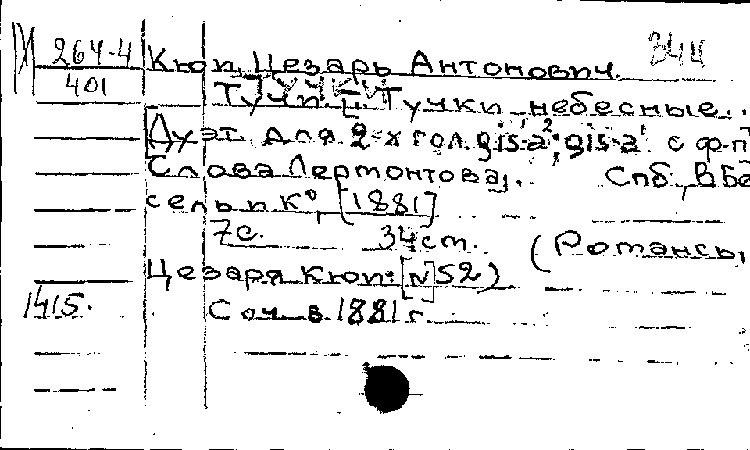 264-4 Кюи, Цезарь Антонович. 344
401 ТУЧКИ
Тучки. Тучки небесные..
[Дуэт для 2-х гол. gis-a²; gis-a¹ с ф-п
Слова Лермонтова]. Спб, В.Бе
сель и К°, [1881]
7с. 34 ст. (Романсы
Цезаря Кюи. [№ 52)
1415. Соч. в 1881 г.